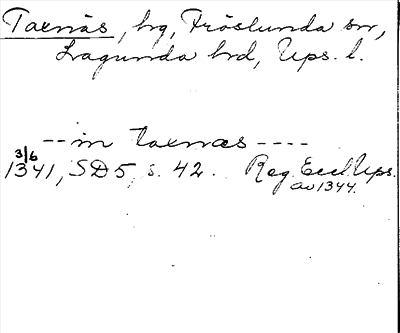 Taxnäs, hg, Fröslunda sn,
Lagunda hrd, Ups. l.
--in taxnæs----
3/6
1341, SD 5, s. 42. Reg. Eccl. Ups.
av 1344.